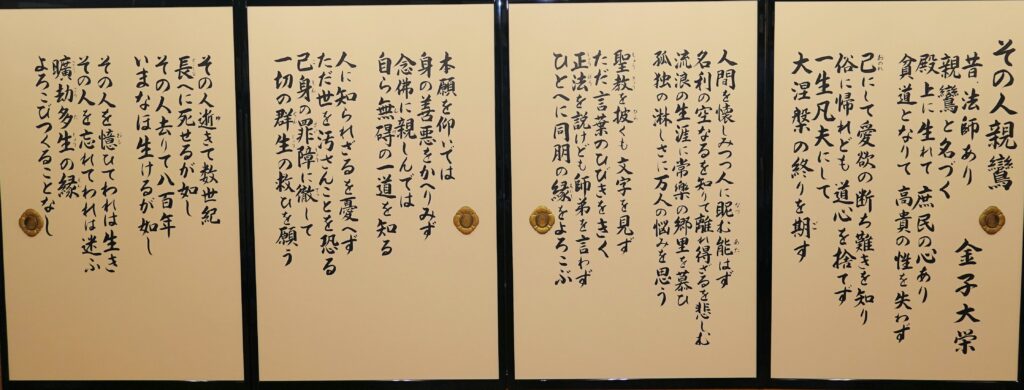 その人親鸞　金子大栄
昔法師あり
親鸞と名づく
殿上に生れて 庶民の心あり
貧道となりて 高貴の性を失わず
己にして愛欲の断ち難きを知り
俗に帰れども 道心を捨てず
一生凡夫にして
大涅槃の終りを期す
人間を懐しみつつ人に昵む能はず
名利の空なるを知りて離れ得ざるを悲しむ
流浪の生涯に常楽の郷里を慕ひ
孤独の淋しさに万人の悩みを思う
聖教を披くも文字を見ず
ただ言葉のひびきをきく
正法を説けども師弟を言わず
ひとへに同朋の縁をよろこぶ
本願を仰いでは
身の善悪をかへりみず
念佛に親しんでは
自ら無碍の一道を知る
人に知られざるを憂へず
ただ世を汚さんことを恐る
己身の罪障に徹して
一切の群生の救ひを願う
その人逝きて数世紀
長へに死せるが如し
その人去りて八百年
いまなほ生けるが如し
その人を憶ひてわれは生き
その人を忘れてわれは迷ふ
曠劫多生の縁
よろこびつくることなし